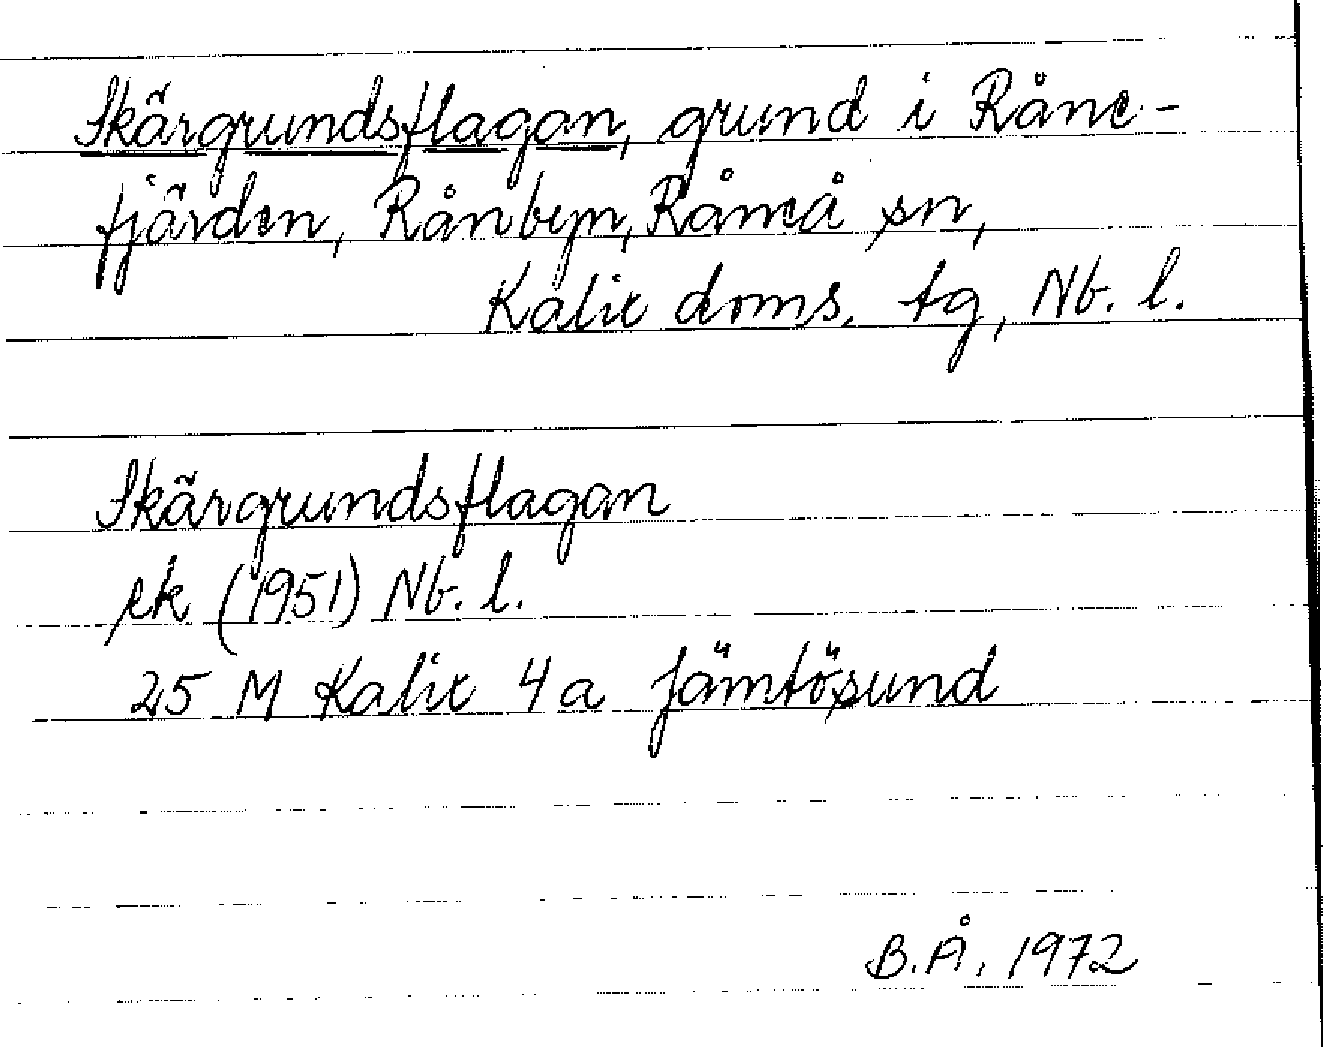 Skärgrundsflagan, grund i Råne-
fjärden, Rånbyn, Råneå sn,
Kalix doms. tg, Nb. l.
Skärgrundsflagan
ek (1951) Nb. l.
25 M Kalix 4a Jämtösund
B.Å. 1972